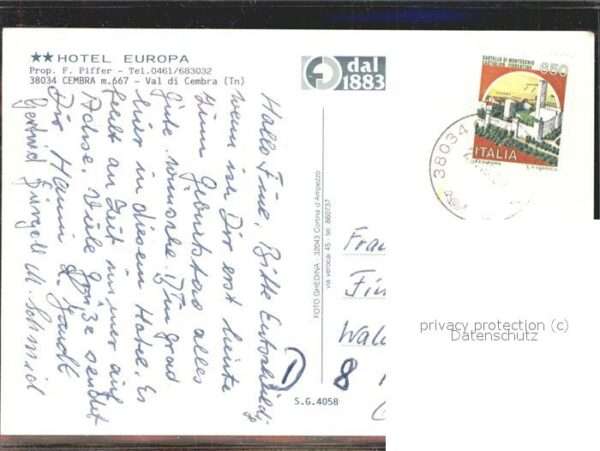 ★★HOTEL EUROPA
Prop. F. Piffer - Tel.0461/683032
38034 CEMBRA m.667 - Val di Cembra (Tn)
dal
1883
CASTELLO DI MONTECCHIO
CASTIGLION FIORENTINO
850
ITALIA
38034
Hallo Fine, Bitte Entschuldig
wenn ich Dir erst heute
zum Geburtstag alles
gute wünsche. Bin grad
hier in diesem Hotel. Es
fehlt an Zeit immer auf
Achse. Viele Grüße sendet
Dir
Gertrud
1
FOTO GHEDINA - 32043 Cortina d'Ampezzo
via verocai 45 - tel. 860737
S.G.4058
Frau
Fin
Wal
8
privacy protection (c)
Datenschutz